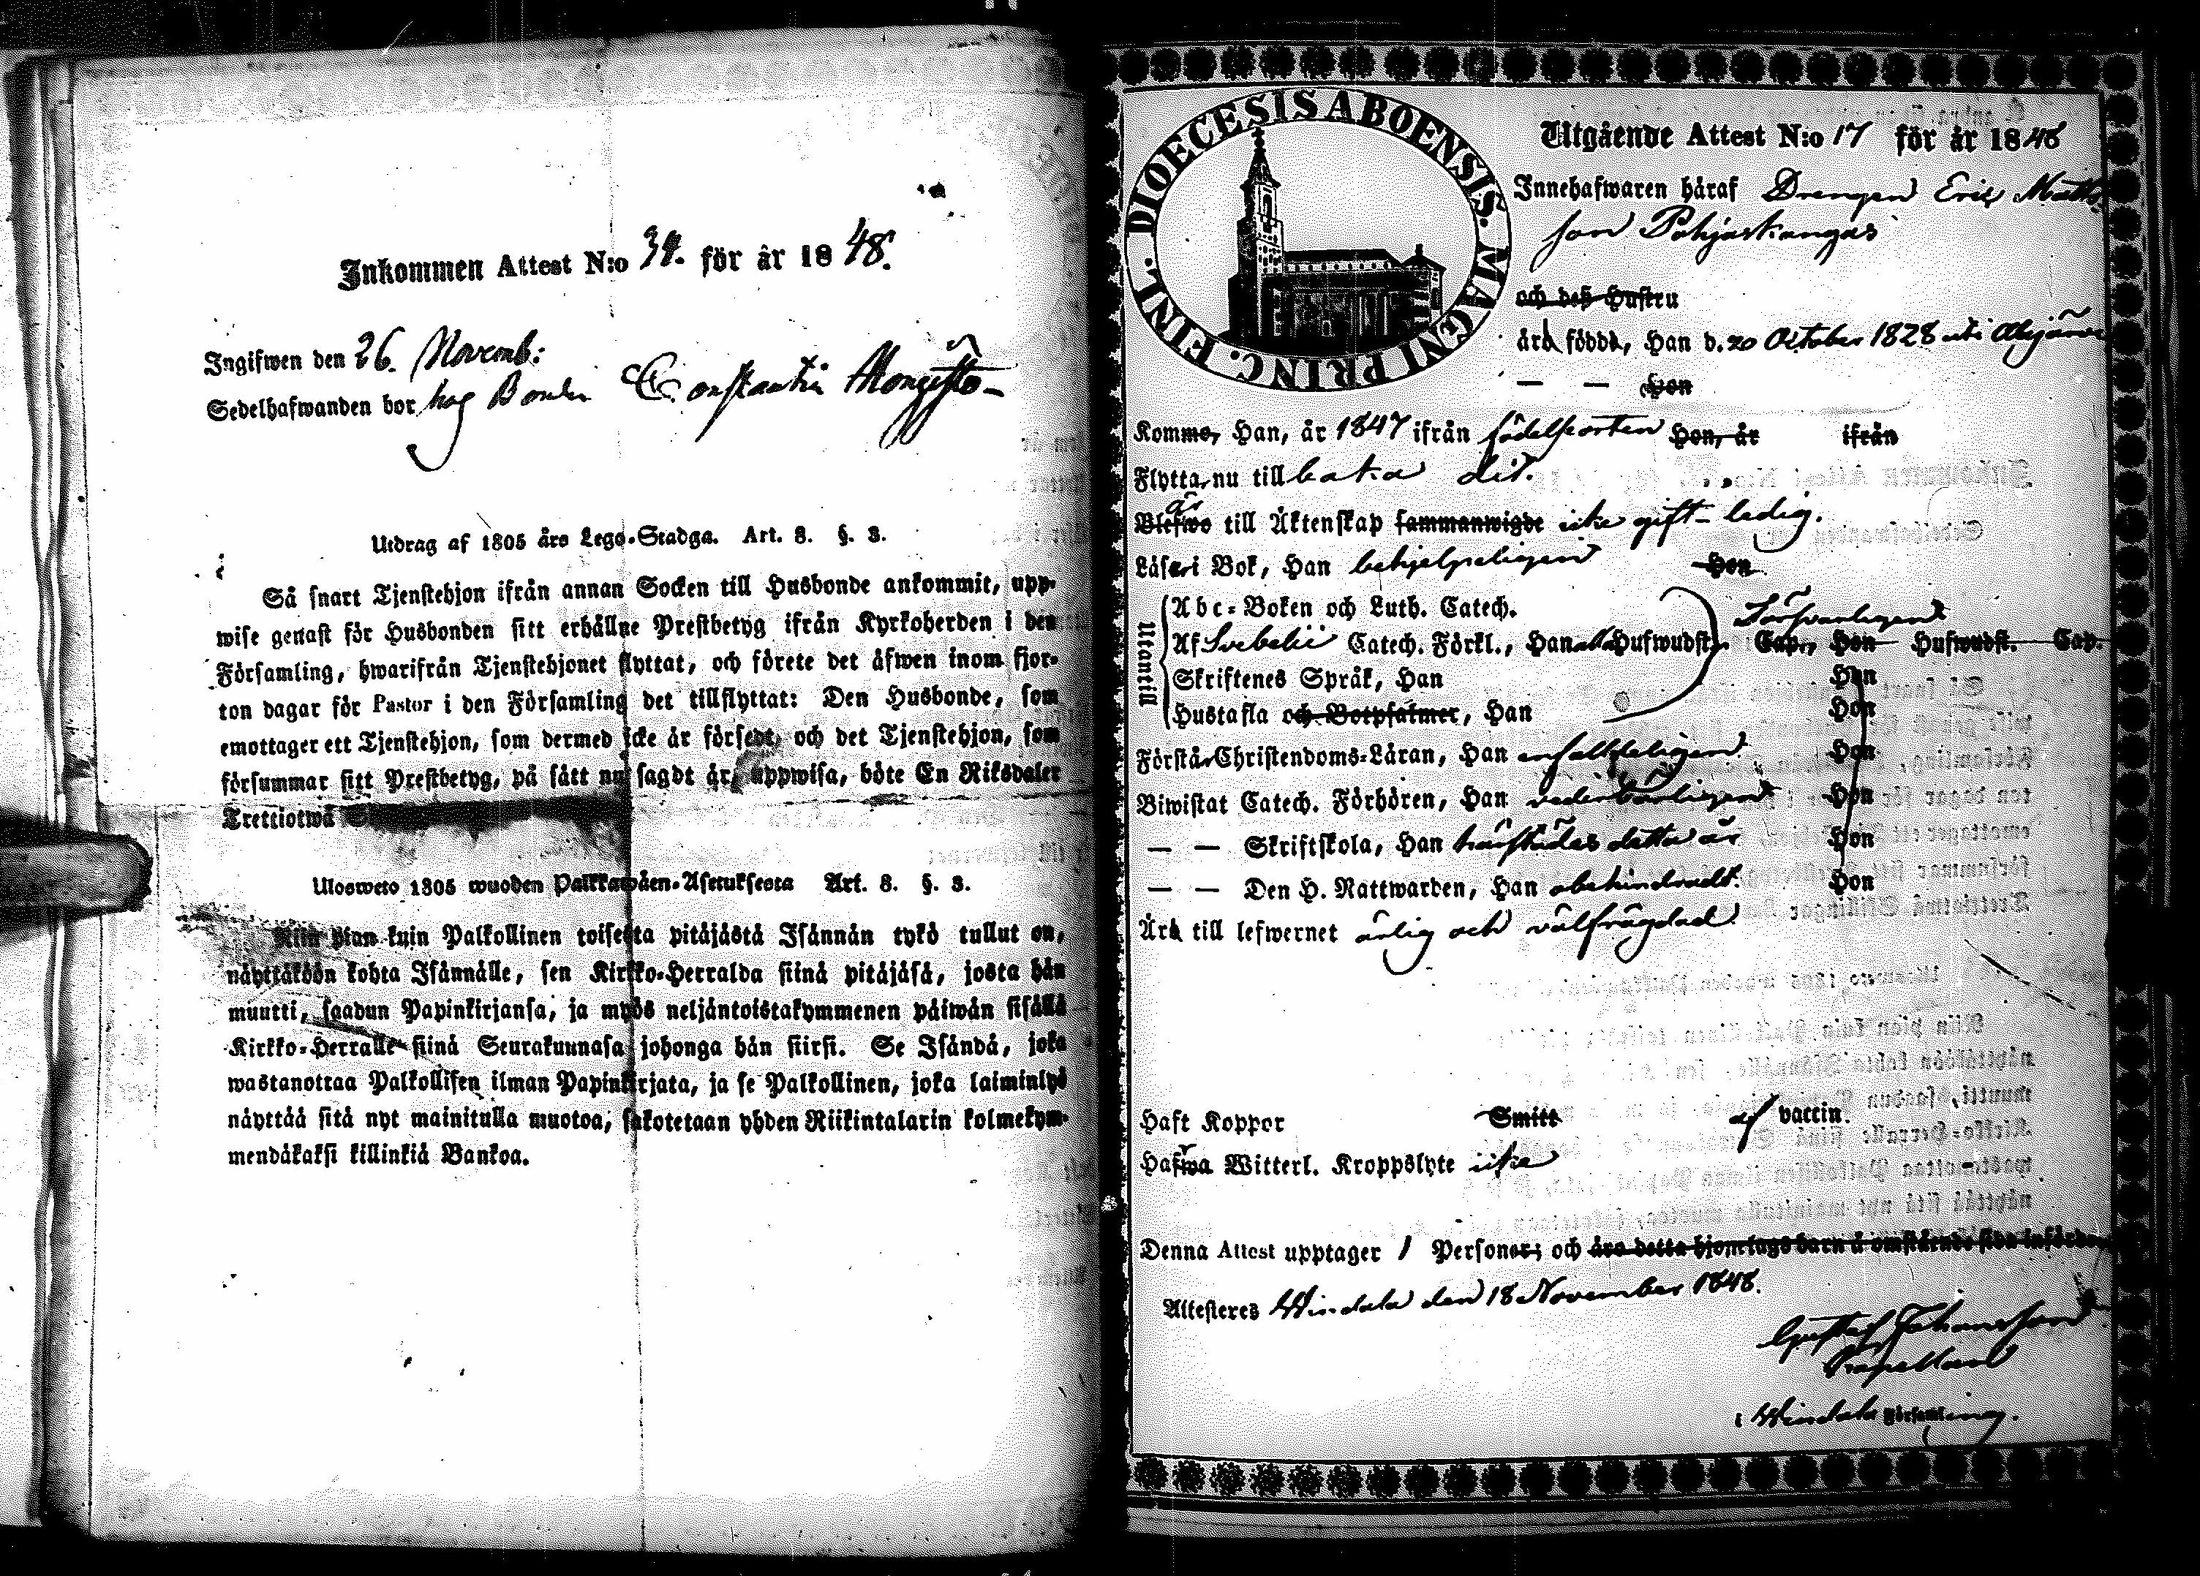 Inkommen Attest N:o 34. för år 1848.
Ingifwen den 26. Novemb:
Sedelhafwanden bor hos Bonden Constantin
Utdrag af 1805 års Lego-Stadga. Art. 8. §. 3.
Så snart Tjenstehjon ifrån annan Socken till Husbonde ankommit, upp-
wise genast för Husbonden sitt erhållne Prestbetyg ifrån Kyrkoherden i den
Församling, hwarifrån Tjenstehjonet flyttat, och förete det äfwen inom fjor-
ton dagar för Pastor i den Församling det tillflyttat: Den Husbonde, som
emottager ett Tjenstehjon, som dermed icke är försedt, och det Tjenstehjon, som
försummar sitt Prestbetyg, på sätt nu sagdt är, uppwisa, böte En Riksdaler
Trettiotwå
Ulosweto 1805 wuoden Palkkawäen-Asetuksesta Art. 8. §. 3.
Niin pian kuin Palkollinen toisesta pitäjästä Isännän tykö tullut on,
näyttäköön kohta Isännälle, sen Kirkko-Herralda siinä pitäjäsä, josta hän
muutti, saadun Papinkirjansa, ja myös neljäntoistakymmenen päiwän sisällä
Kirkko-Herralle siinä Seurakunnasa johonga hän siirsi. Se Isändä, joka
wastanottaa Palkollisen ilman Papinkirjata, ja se Palkollinen, joka laiminlyö
näyttää sitä nyt mainitulla muotoa, sakotetaan yhden Riikintalarin kolmekym-
mendäkaksi killinkiä Bankoa.
DIOECESIS ABOENSIS. MAGNI PRINC. FINL.
Utgående Attest N:o 17 för år 1848
Innehafwaren häraf Drengen Eric Matts-
son Pohjaskangas
och deß Hustru
är född, Han d. 20 October 1828 uti
— — Hon
Komme, Han, år 1847 ifrån födelseorten Hon, år ifrån
Flytta, nu till baka dit.
är
Blefwo till Äktenskap sammanwigde icke gift - ledig.
Läser i Bok, Han behjelpeligen Hon
Utantill
Abc-Boken och Luth. Catech.
Försvarligen
Af Svebelii Catech. Förkl., Han Hufwudst. Cap., Hon Hufwudst. Cap.
Skriftenes Språk, Han Hon
Hustafla och Botpsalmer, Han Hon
Förstår Christendoms-Läran, Han enfaldeligen Hon
Biwistat Catech. Förhören, Han vederbörligen Hon
— — Skriftskola, Han härstädes detta år Hon
— — Den H. Nattwarden, Han obehindradt. Hon
Är till lefwernet ärlig och välfrägdad
Haft Koppor Smitt af vaccin.
Hafwa Witterl. Kroppslyte icke
Denna Attest upptager 1 Personer; och äro detta hjonelags barn å omstående sida införde.
Attesteres Hvindala den 18 November 1848.
Gustaf Johansson
Capellan
i Hvindala Församling.